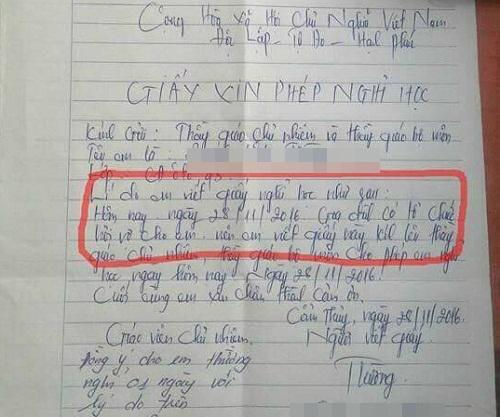 Cộng Hòa Xã Hội Chủ Nghĩa Việt Nam
Độc Lập - Tự Do - Hạnh phúc
GIẤY XIN PHÉP NGHỈ HỌC
Kính Gửi: Thầy giáo chủ nhiệm và thầy giáo bộ môn
Tên em là:
Lớp
Lí do em viết giấy nghỉ học như sau:
Hôm nay ngày 28/11/2016. Gia đình có tổ chức
hỏi vợ cho em nên em viết giấy này kil lên thầy
giáo chủ nhiệm thầy giáo bộ môn cho phép em nghỉ
học ngày hôm nay Ngày 28/11/2016.
Cuối cùng em xin chân thành cảm ơn.
Cẩm Thủy, ngày 28/11/2016
Giáo viên chủ nhiệm
Người viết giấy
đồng ý cho em thường
nghỉ 01 ngày với
lý do trên
Thường